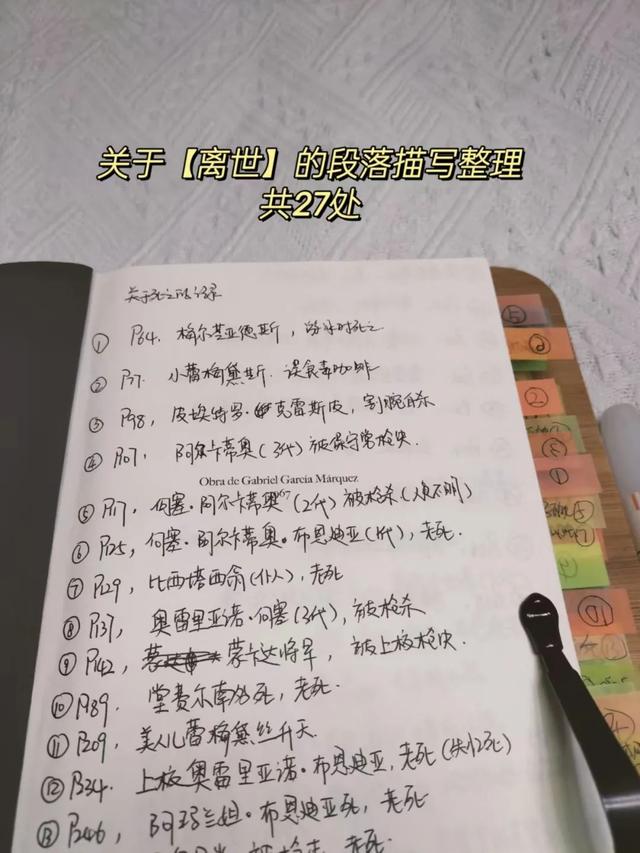 关于【离世】的段落描写整理
共27处
关于死亡的记录
① P64. 梅尔基亚德斯，游泳时死亡
② P77. 小蕾梅黛斯. 误食毒咖啡
③ P98, 皮埃特罗·克雷斯皮, 割腕自杀
④ P107. 阿尔卡蒂奥(3代)被保守党枪决.
Obra de Gabriel García Márquez
⑤ P117, 何塞·阿尔卡蒂奥(2代)被枪杀(人员不明)
⑥ P125, 何塞·阿尔卡蒂奥·布恩迪亚(1代), 老死.
⑦ P129, 比西塔西翁(仆人), 老死
⑧ P137, 奥雷里亚诺·何塞(3代), 被枪杀
⑨ P142, 蒙卡达将军, 被上校枪决.
⑩ P189. 堂费尔南多死, 老死.
⑪ P209, 美人儿蕾梅黛丝升天.
⑫ P234. 上校奥雷里亚诺·布恩迪亚, 老死
⑬ P246, 阿玛兰妲·布恩迪亚死, 老死